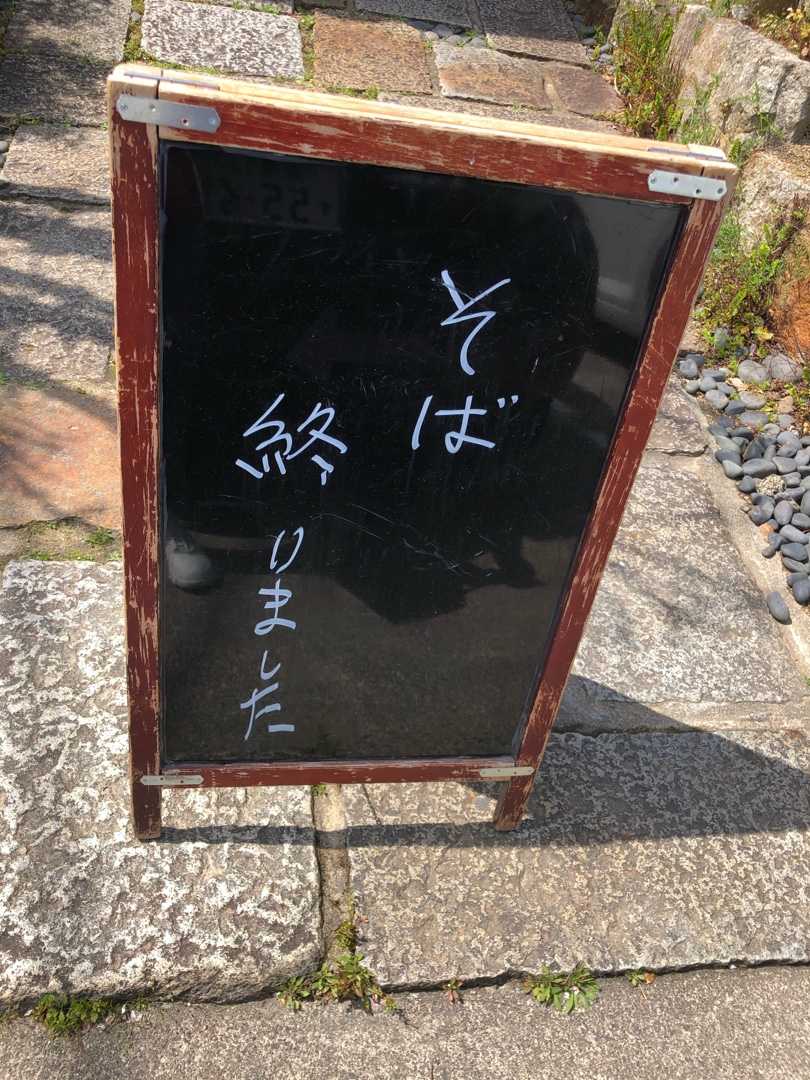 そば
終りました